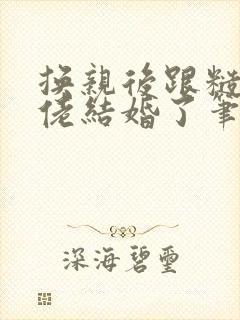 換親後跟糙
佬結婚了 筆
深海碧璽